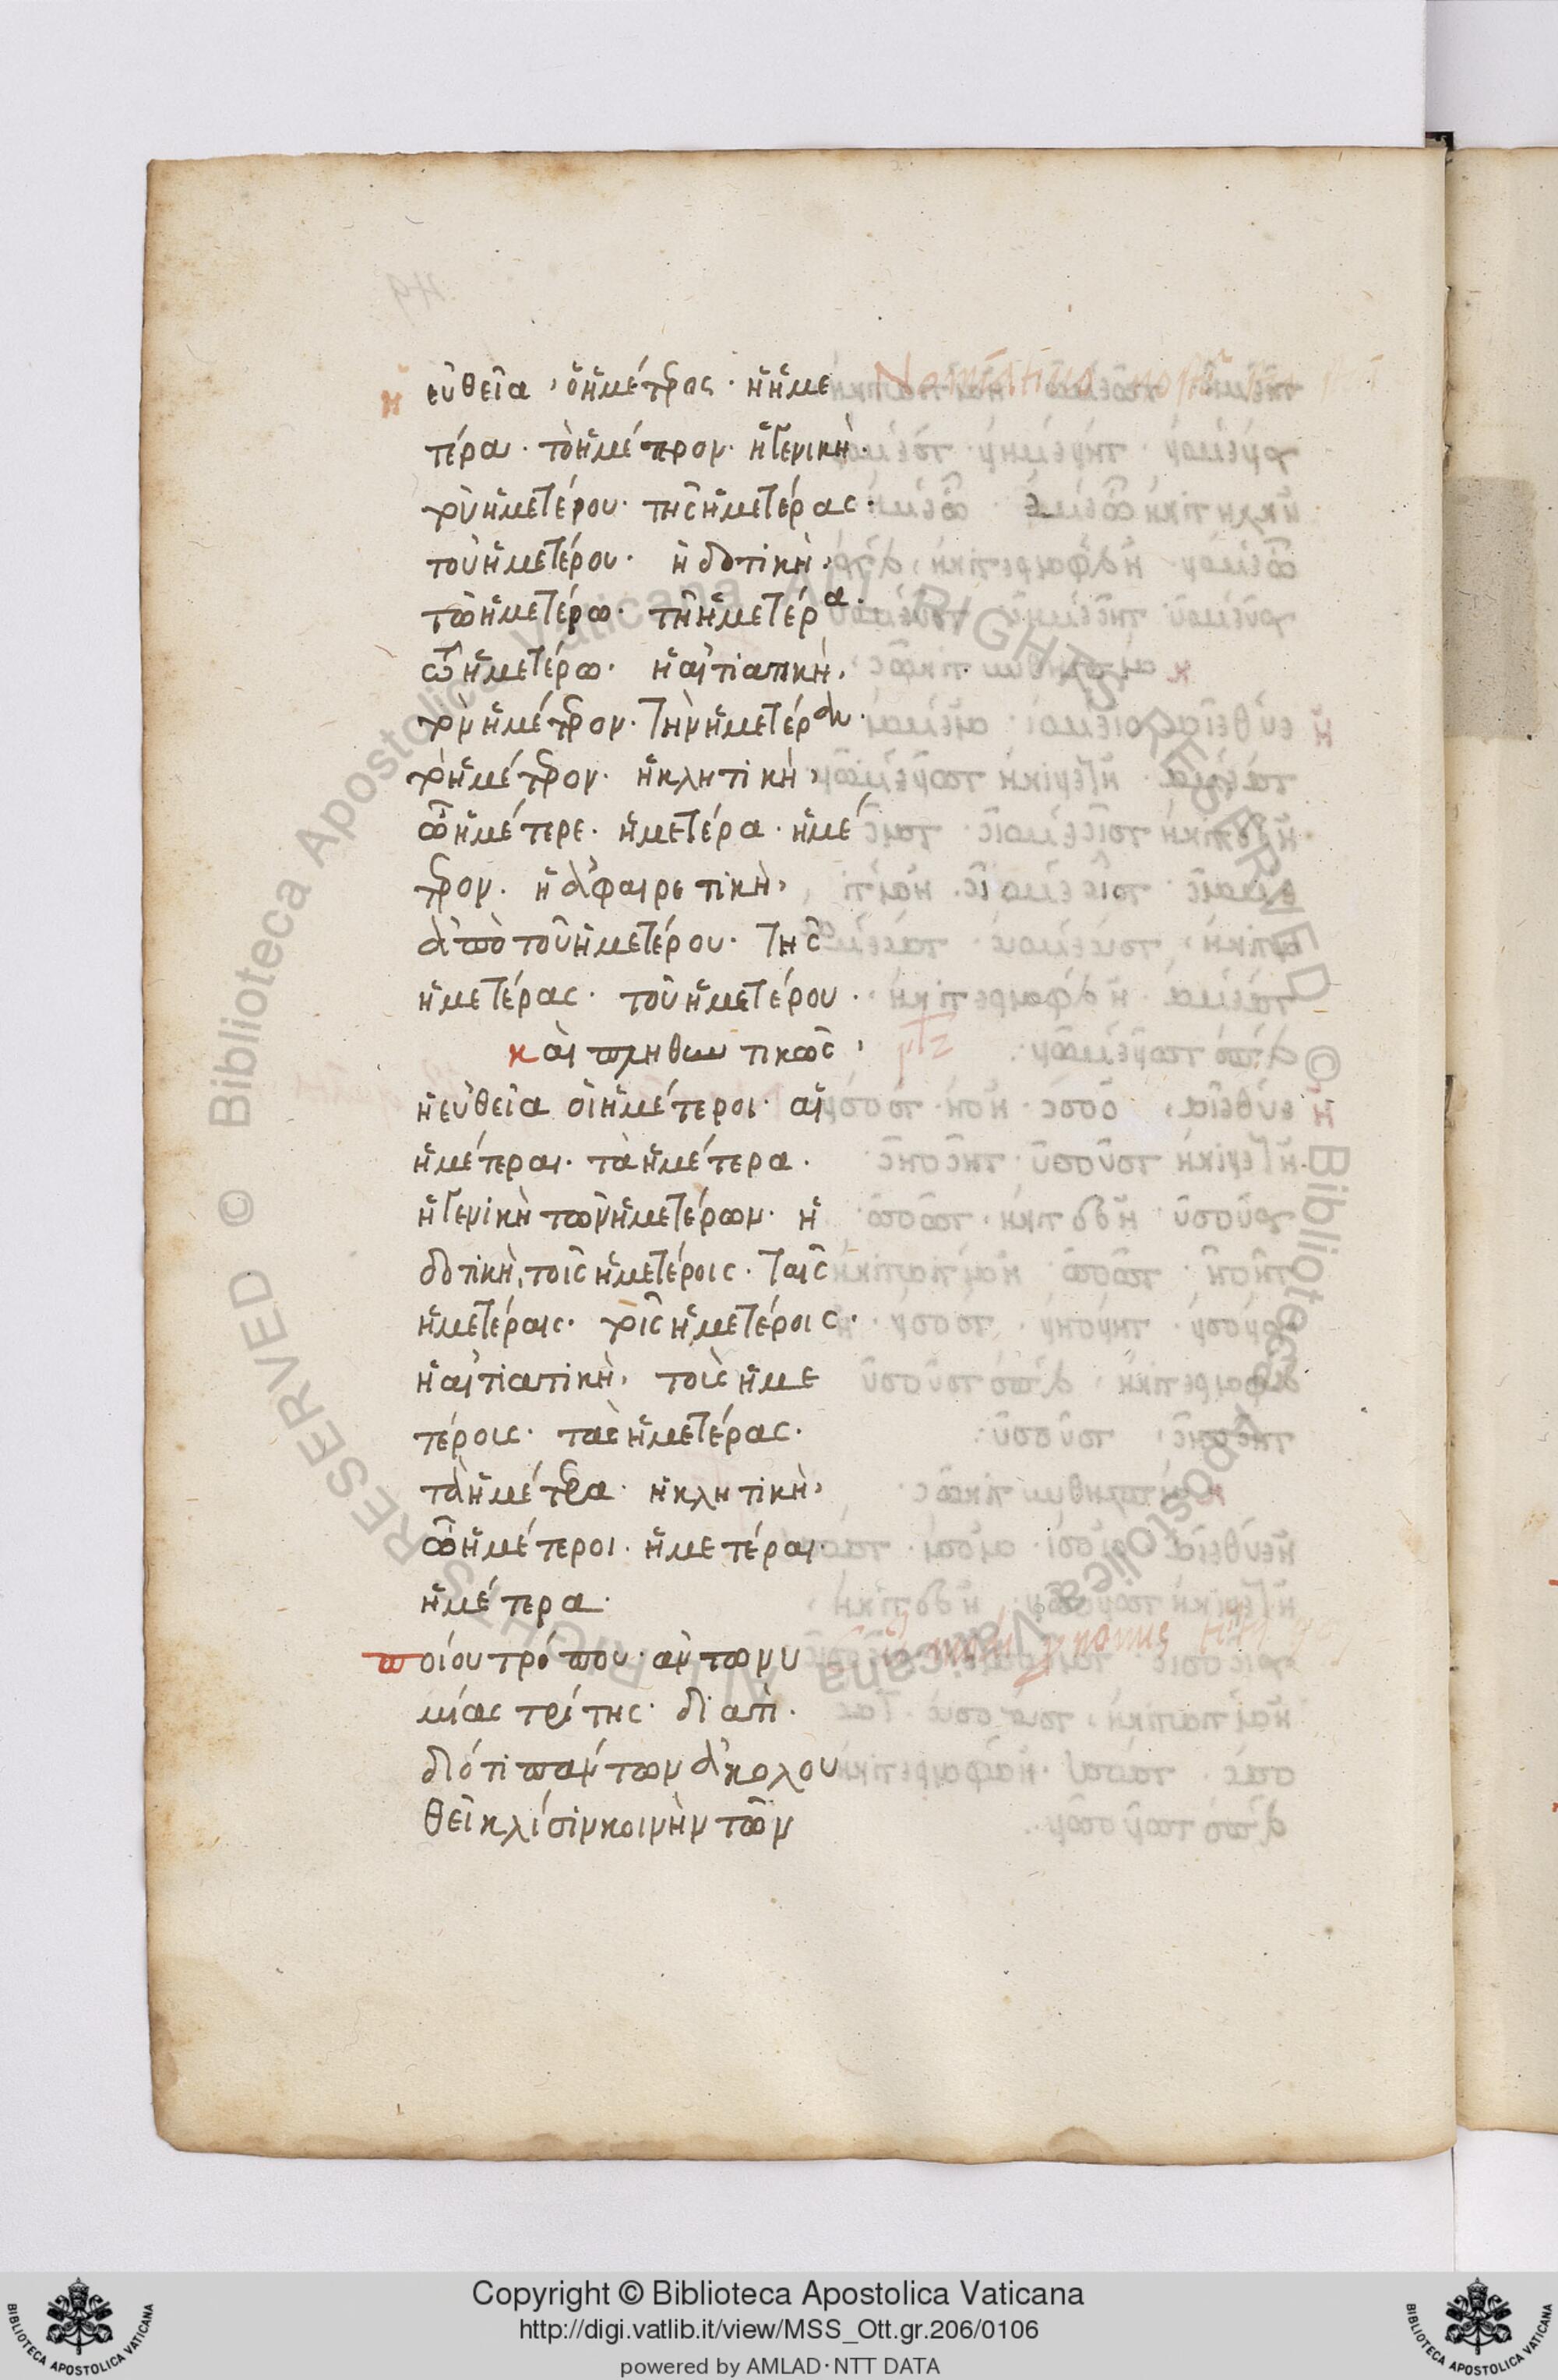 ἡ εὐθεῖα, ὁ ἡμέτερος· ἡ ἡμε
τέρα· τὸ ἡμέτερον· ἡ γενικὴ·
τοῦ ἡμετέρου· τῆς ἡμετέρας·
τοῦ ἡμετέρου· ἡ δοτικὴ,
τῶ ἡμετέρω· τῆ ἡμετέρα·
τῶ ἡμετέρω· ἡ αἰτιατικὴ,
τὸν ἡμέτερον· τὴν ἡμετέραν·
τὸ ἡμέτερον· ἡ κλητικὴ,
ὦ ἡμέτερε· ἡμετέρα· ἡμέ
τερον· ἡ ἀφαιρετικὴ,
ἀπὸ τοῦ ἡμετέρου· τῆς
ἡμετέρας· τοῦ ἡμετέρου·
καὶ πληθυντικῶς,
ἡ εὐθεῖα οἱ ἡμέτεροι· αἱ
ἡμέτεραι· τὰ ἡμέτερα·
ἡ γενικὴ τῶν ἡμετέρων· ἡ
δοτικὴ, τοῖς ἡμετέροις· ταῖς
ἡμετέραις· τοῖς ἡμετέροις·
ἡ αἰτιατικὴ, τοὺς ἡμε
τέρους· τὰς ἡμετέρας·
τὰ ἡμέτερα· ἡ κλητικὴ,
ὦ ἡμέτεροι· ἡμετέραι·
ἡμέτερα·
ποίου τρόπου· ἀντωνυ
μίας τρίτης· διατί·
διότι πάντων ἀκολου
θεῖ κλίσιν κοινὴν τῶν
Copyright © Biblioteca Apostolica Vaticana
http://digi.vatlib.it/view/MSS_Ott.gr.206/0106
powered by AMLAD·NTT DATA
BIBLIOTECA APOSTOLICA VATICANA
BIBLIOTECA APOSTOLICA VATICANA